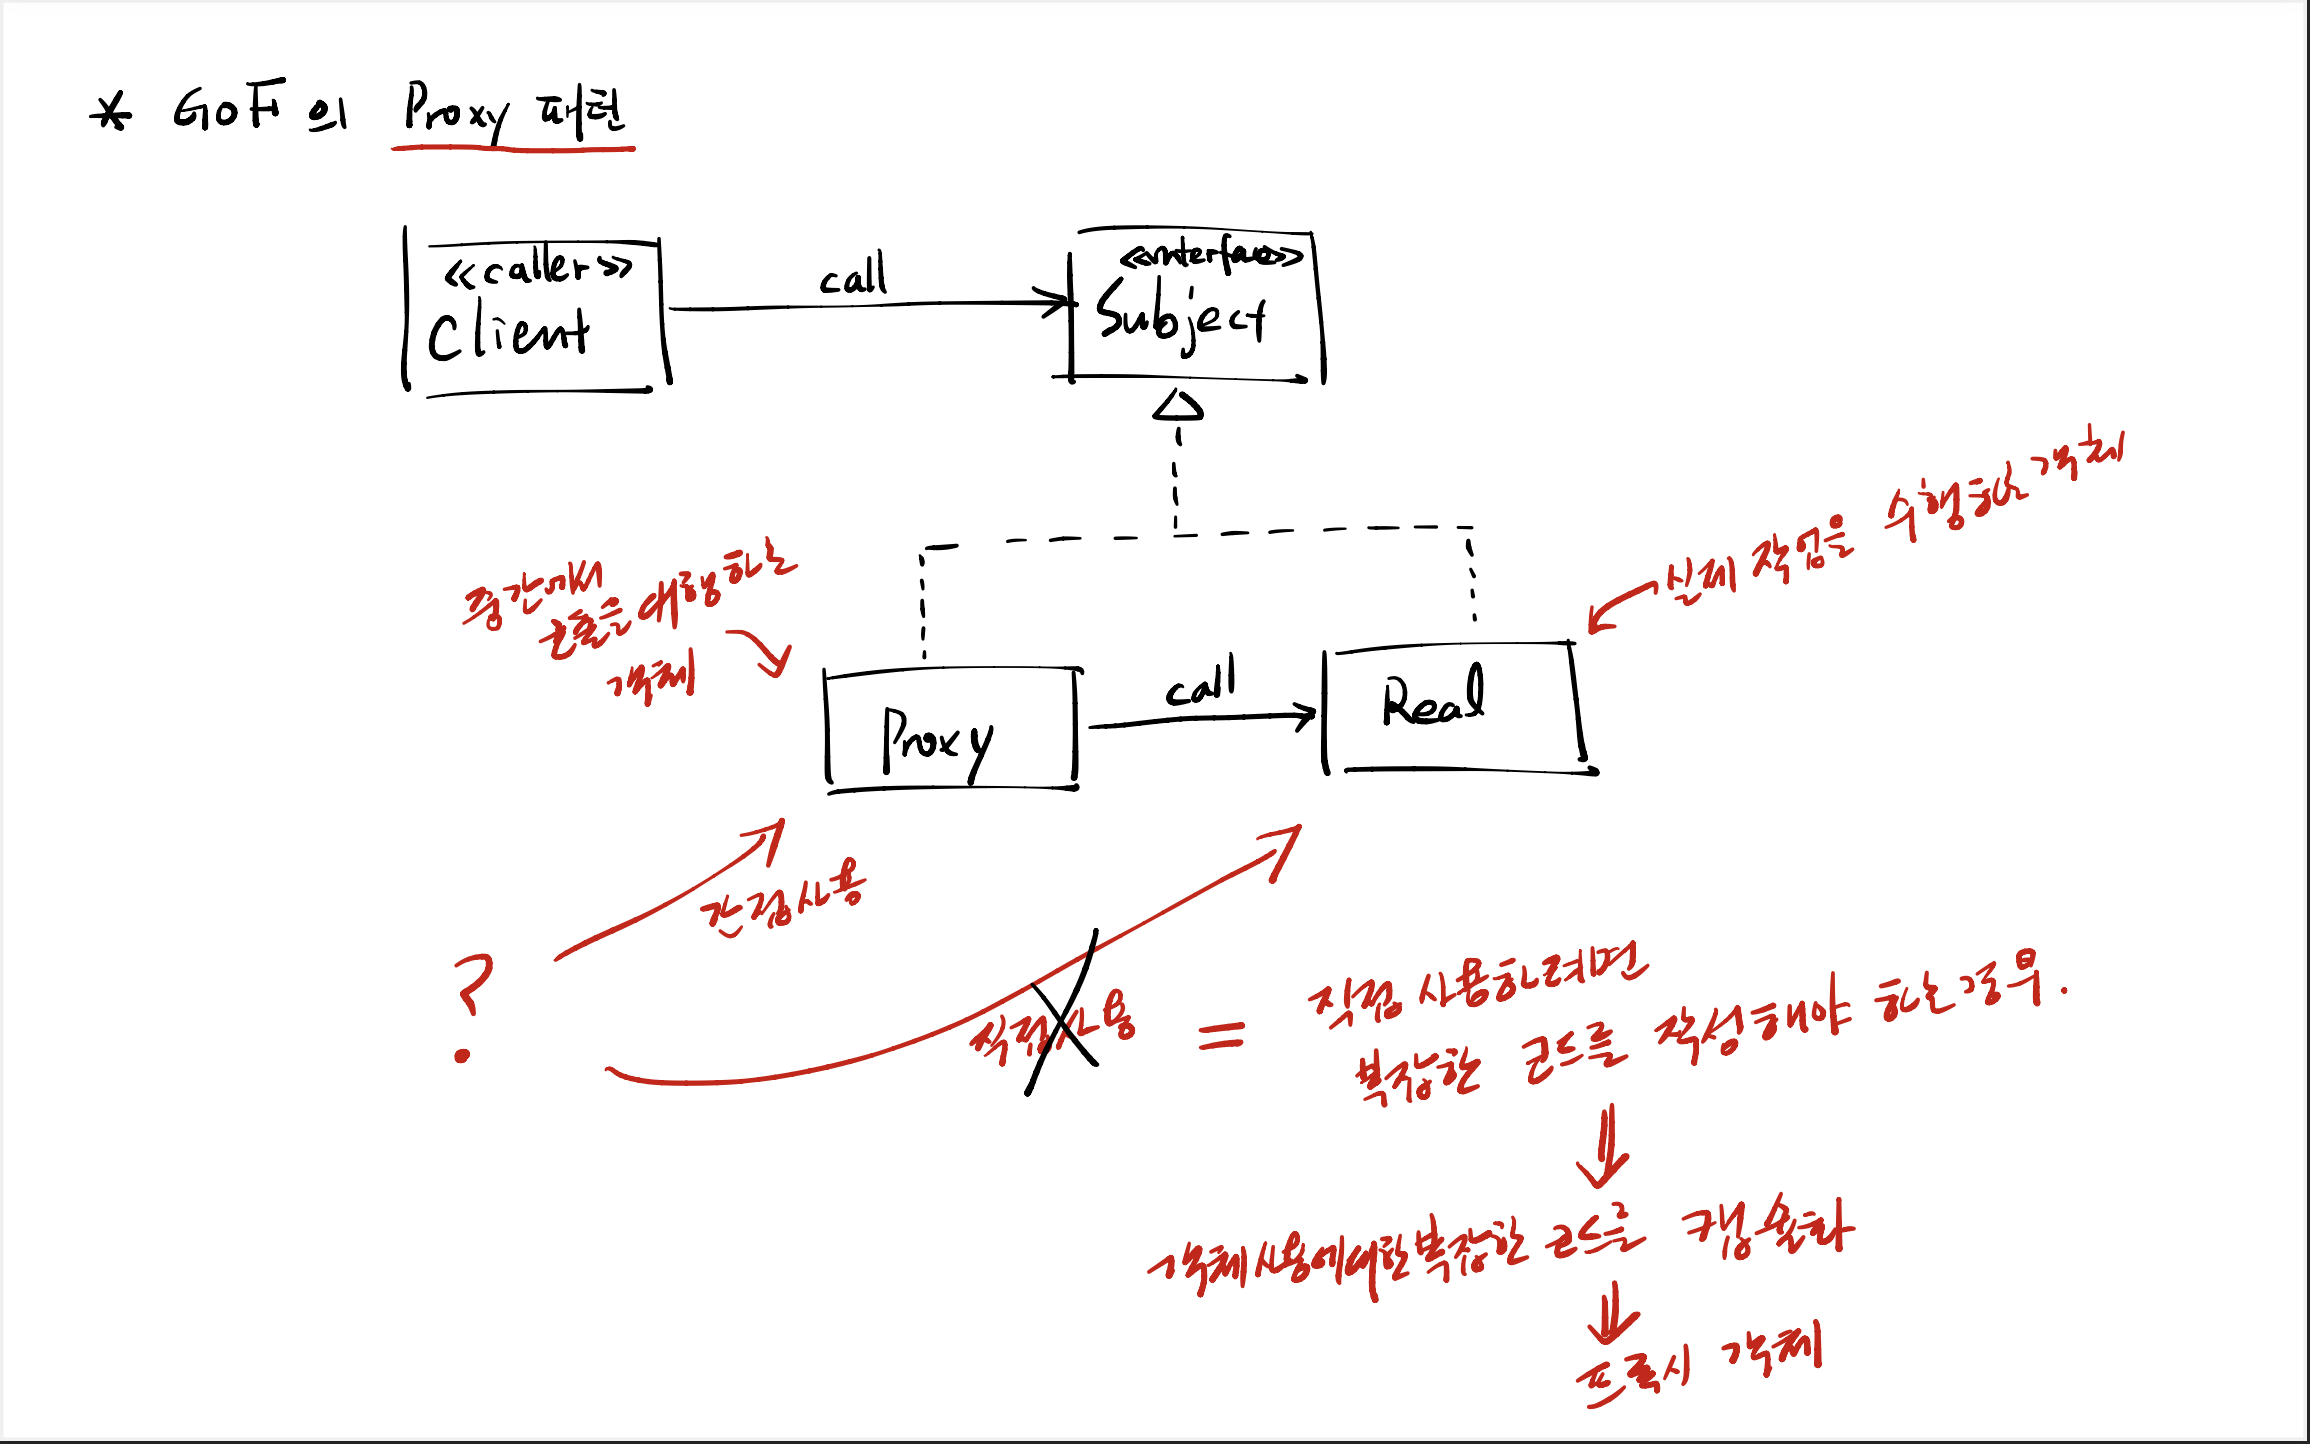 * GoF의 Proxy 패턴
<<caller>>
Client
call
<<interface>>
Subject
중간에서
호출을 대행하는
객체
실제 작업을 수행하는 객체
Proxy
call
Real
간접사용
?
직접사용
=
직접 사용하려면
복잡한 코드를 작성해야 하는 경우.
객체 사용에 대한 복잡한 코드를 캡슐화
프록시 객체